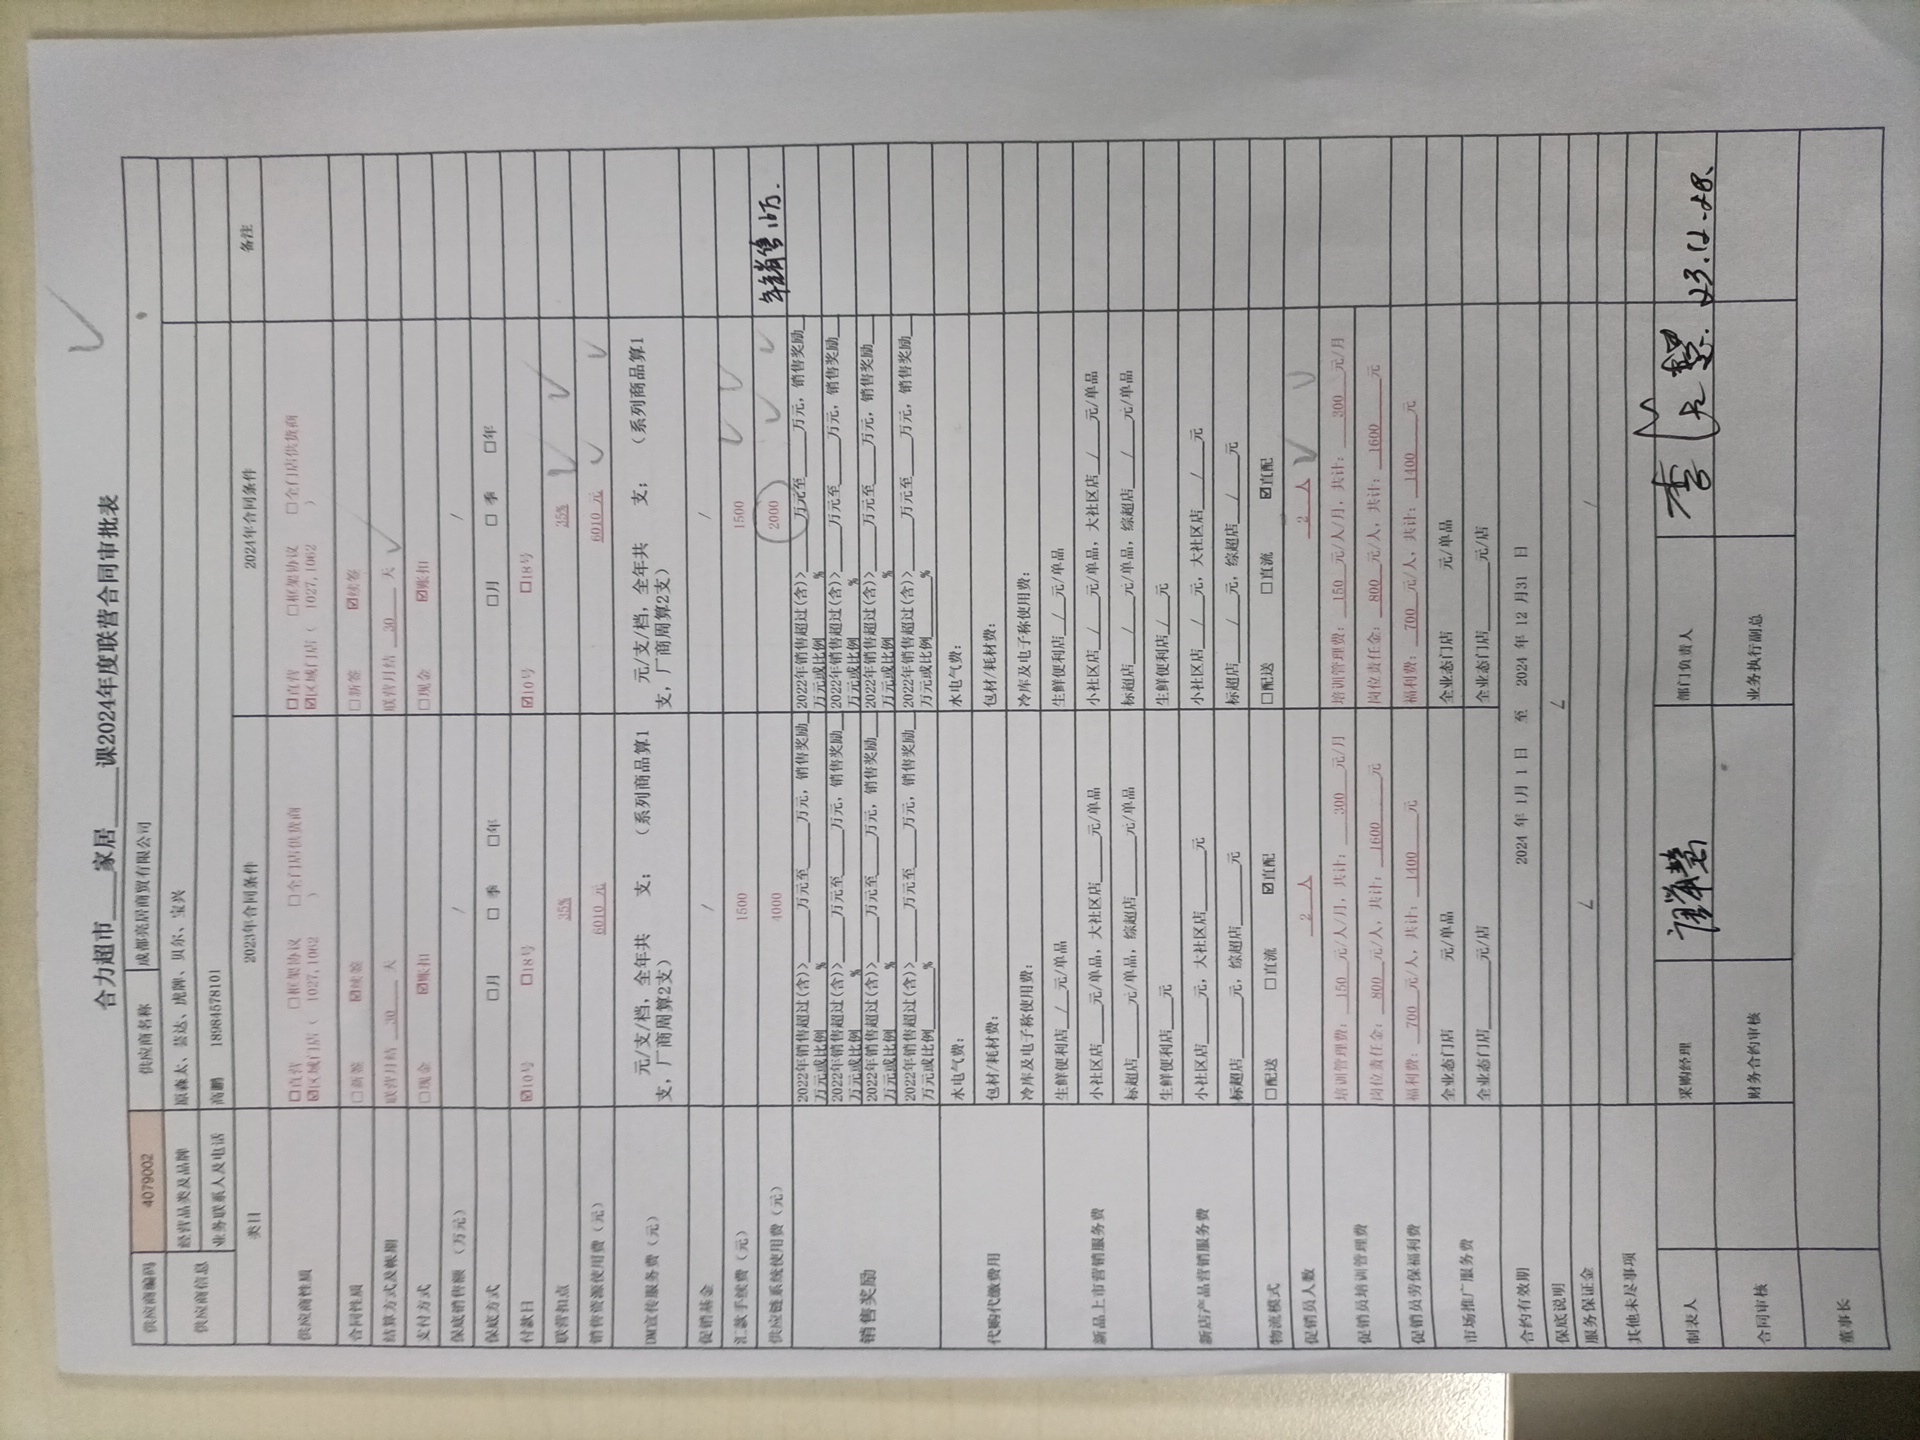 合力超市____家居____课2024年度联营合同审批表
供应商编码 4079002 供应商名称 成都亮居商贸有限公司
供应商信息 经营品类及品牌 原森太、蓝达、虎牌、贝尔、宝兴
业务联系人及电话 高鹏 18984578101
类目 2023年合同条件 2024年合同条件 备注
供应商性质 □直营 □框架协议 □全门店供货商 □直营 □框架协议 □全门店供货商
☑区域门店( 1027,1062 ) ☑区域门店( 1027,1062 )
合同性质 □新签 ☑续签 □新签 ☑续签
结算方式及帐期 联营月结 30 天 联营月结 30 天
支付方式 □现金 ☑账扣 □现金 ☑账扣
保底销售额(万元) / /
保底方式 □月 □季 □年 □月 □季 □年
付款日 ☑10号 □18号 ☑10号 □18号
联营扣点 35% 35%
销售资源使用费(元) 6010 元 6010 元
DM宣传服务费(元) 元/支/档,全年共 支; (系列商品算1支,厂商周算2支) 元/支/档,全年共 支; (系列商品算1支,厂商周算2支)
促销基金 / /
汇款手续费(元) 1500 1500
供应链系统使用费(元) 4000 2000 年销售16万.
销售奖励 2022年销售超过(含)>___万元至___万元,销售奖励_万元或比例___% 2022年销售超过(含)>___万元至___万元,销售奖励_万元或比例___%
2022年销售超过(含)>___万元至___万元,销售奖励_万元或比例___% 2022年销售超过(含)>___万元至___万元,销售奖励_万元或比例___%
2022年销售超过(含)>___万元至___万元,销售奖励_万元或比例___% 2022年销售超过(含)>___万元至___万元,销售奖励_万元或比例___%
2022年销售超过(含)>___万元至___万元,销售奖励_万元或比例___% 2022年销售超过(含)>___万元至___万元,销售奖励_万元或比例___%
代购代缴费用 水电气费: 水电气费:
包材/耗材费: 包材/耗材费:
冷库及电子称使用费: 冷库及电子称使用费:
新品上市营销服务费 生鲜便利店_/_元/单品 生鲜便利店_/_元/单品
小社区店___元/单品,大社区店___元/单品 小社区店_/_元/单品,大社区店_/_元/单品
标超店___元/单品,综超店___元/单品 标超店_/_元/单品,综超店_/_元/单品
新店产品营销服务费 生鲜便利店___元 生鲜便利店_/_元
小社区店___元,大社区店___元 小社区店_/_元,大社区店_/_元
标超店___元,综超店___元 标超店_/_元,综超店_/_元
物流模式 □配送 □直流 ☑直配 □配送 □直流 ☑直配
促销员人数 2 人 2 人
促销员培训管理费 培训管理费: 150 元/人/月,共计: 300 元/月 培训管理费: 150 元/人/月,共计: 300 元/月
岗位责任金: 800 元/人,共计: 1600 元 岗位责任金: 800 元/人,共计: 1600 元
促销员劳保福利费 福利费: 700 元/人,共计: 1400 元 福利费: 700 元/人,共计: 1400 元
市场推广服务费 全业态门店 元/单品 全业态门店 元/单品
全业态门店___元/店 全业态门店___元/店
合约有效期 2024 年 1月 1 日 至 2024 年 12 月31 日
保底说明 /
服务保证金 / /
其他未尽事项
制表人 采购经理 部门负责人 23.12-28
合同审核 财务合约审核 业务执行副总
董事长